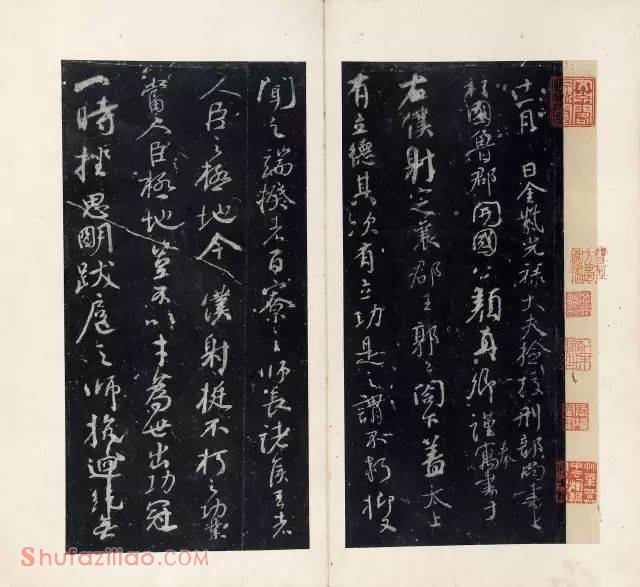 十一月 日金紫光祿大夫檢挍刑部尚書上
柱國魯郡開國公顏真卿謹奉寓書于
右僕射定襄郡王郭公閤下蓋太上
有立德其次有立功是之謂不朽抑又
聞之端揆者百寮之師長諸侯王者
人臣之極地今僕射挺不朽之功業
當人臣極地豈不以才為世出功冠
一時挫思明跋扈之師抗迴紇無
Shufaziliao.com